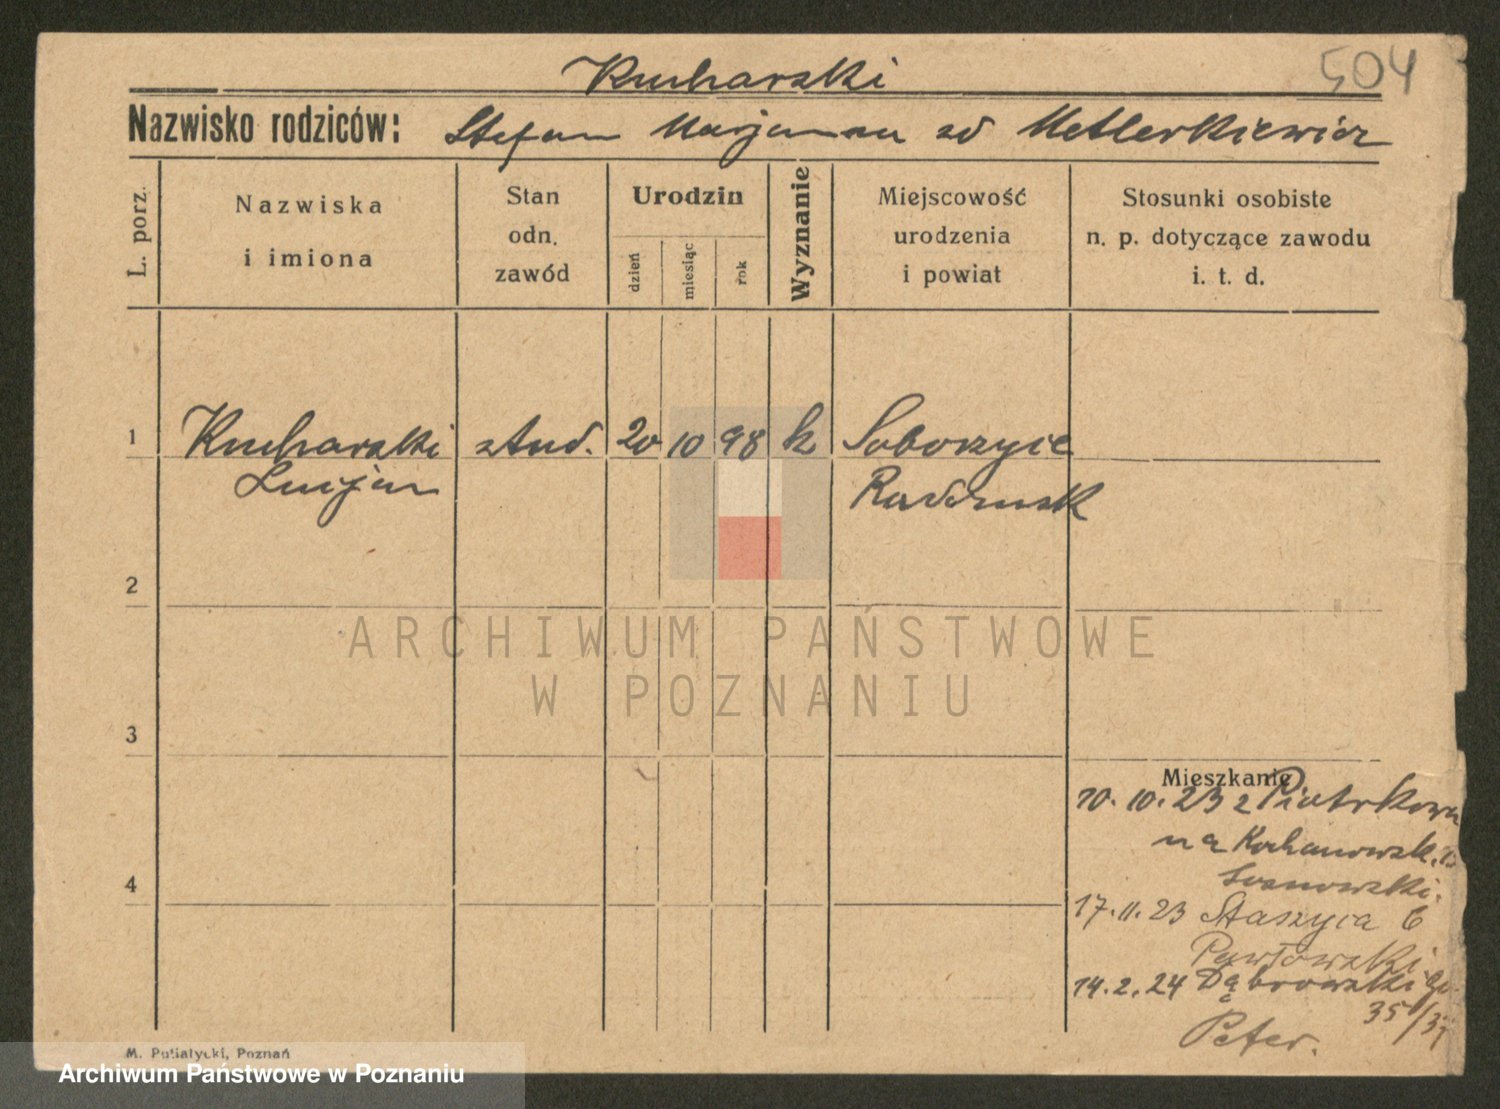 Kucharski
504
Nazwisko rodziców: Stefan Marjanna zd Metlerkiewicz
L. porz.
Nazwiska
i imiona
Stan
odn.
zawód
Urodzin
dzień
miesiąc
rok
Wyznanie
Miejscowość
urodzenia
i powiat
Stosunki osobiste
n. p. dotyczące zawodu
i. t. d.
1 Kucharski stud. 20 10 98 k Soborzyce
Lucjan Radomsk
2
3
4
ARCHIWUM PAŃSTWOWE
W POZNANIU
Mieszkanie
10.10.23 z Piotrkowa
na Kochanowsk.
Sosnowski.
17.11.23 Staszyca 6
Pawłowski
14.2.24 Dąbrowskiego
35/37
Peter.
M. Putiatycki, Poznań
Archiwum Państwowe w Poznaniu